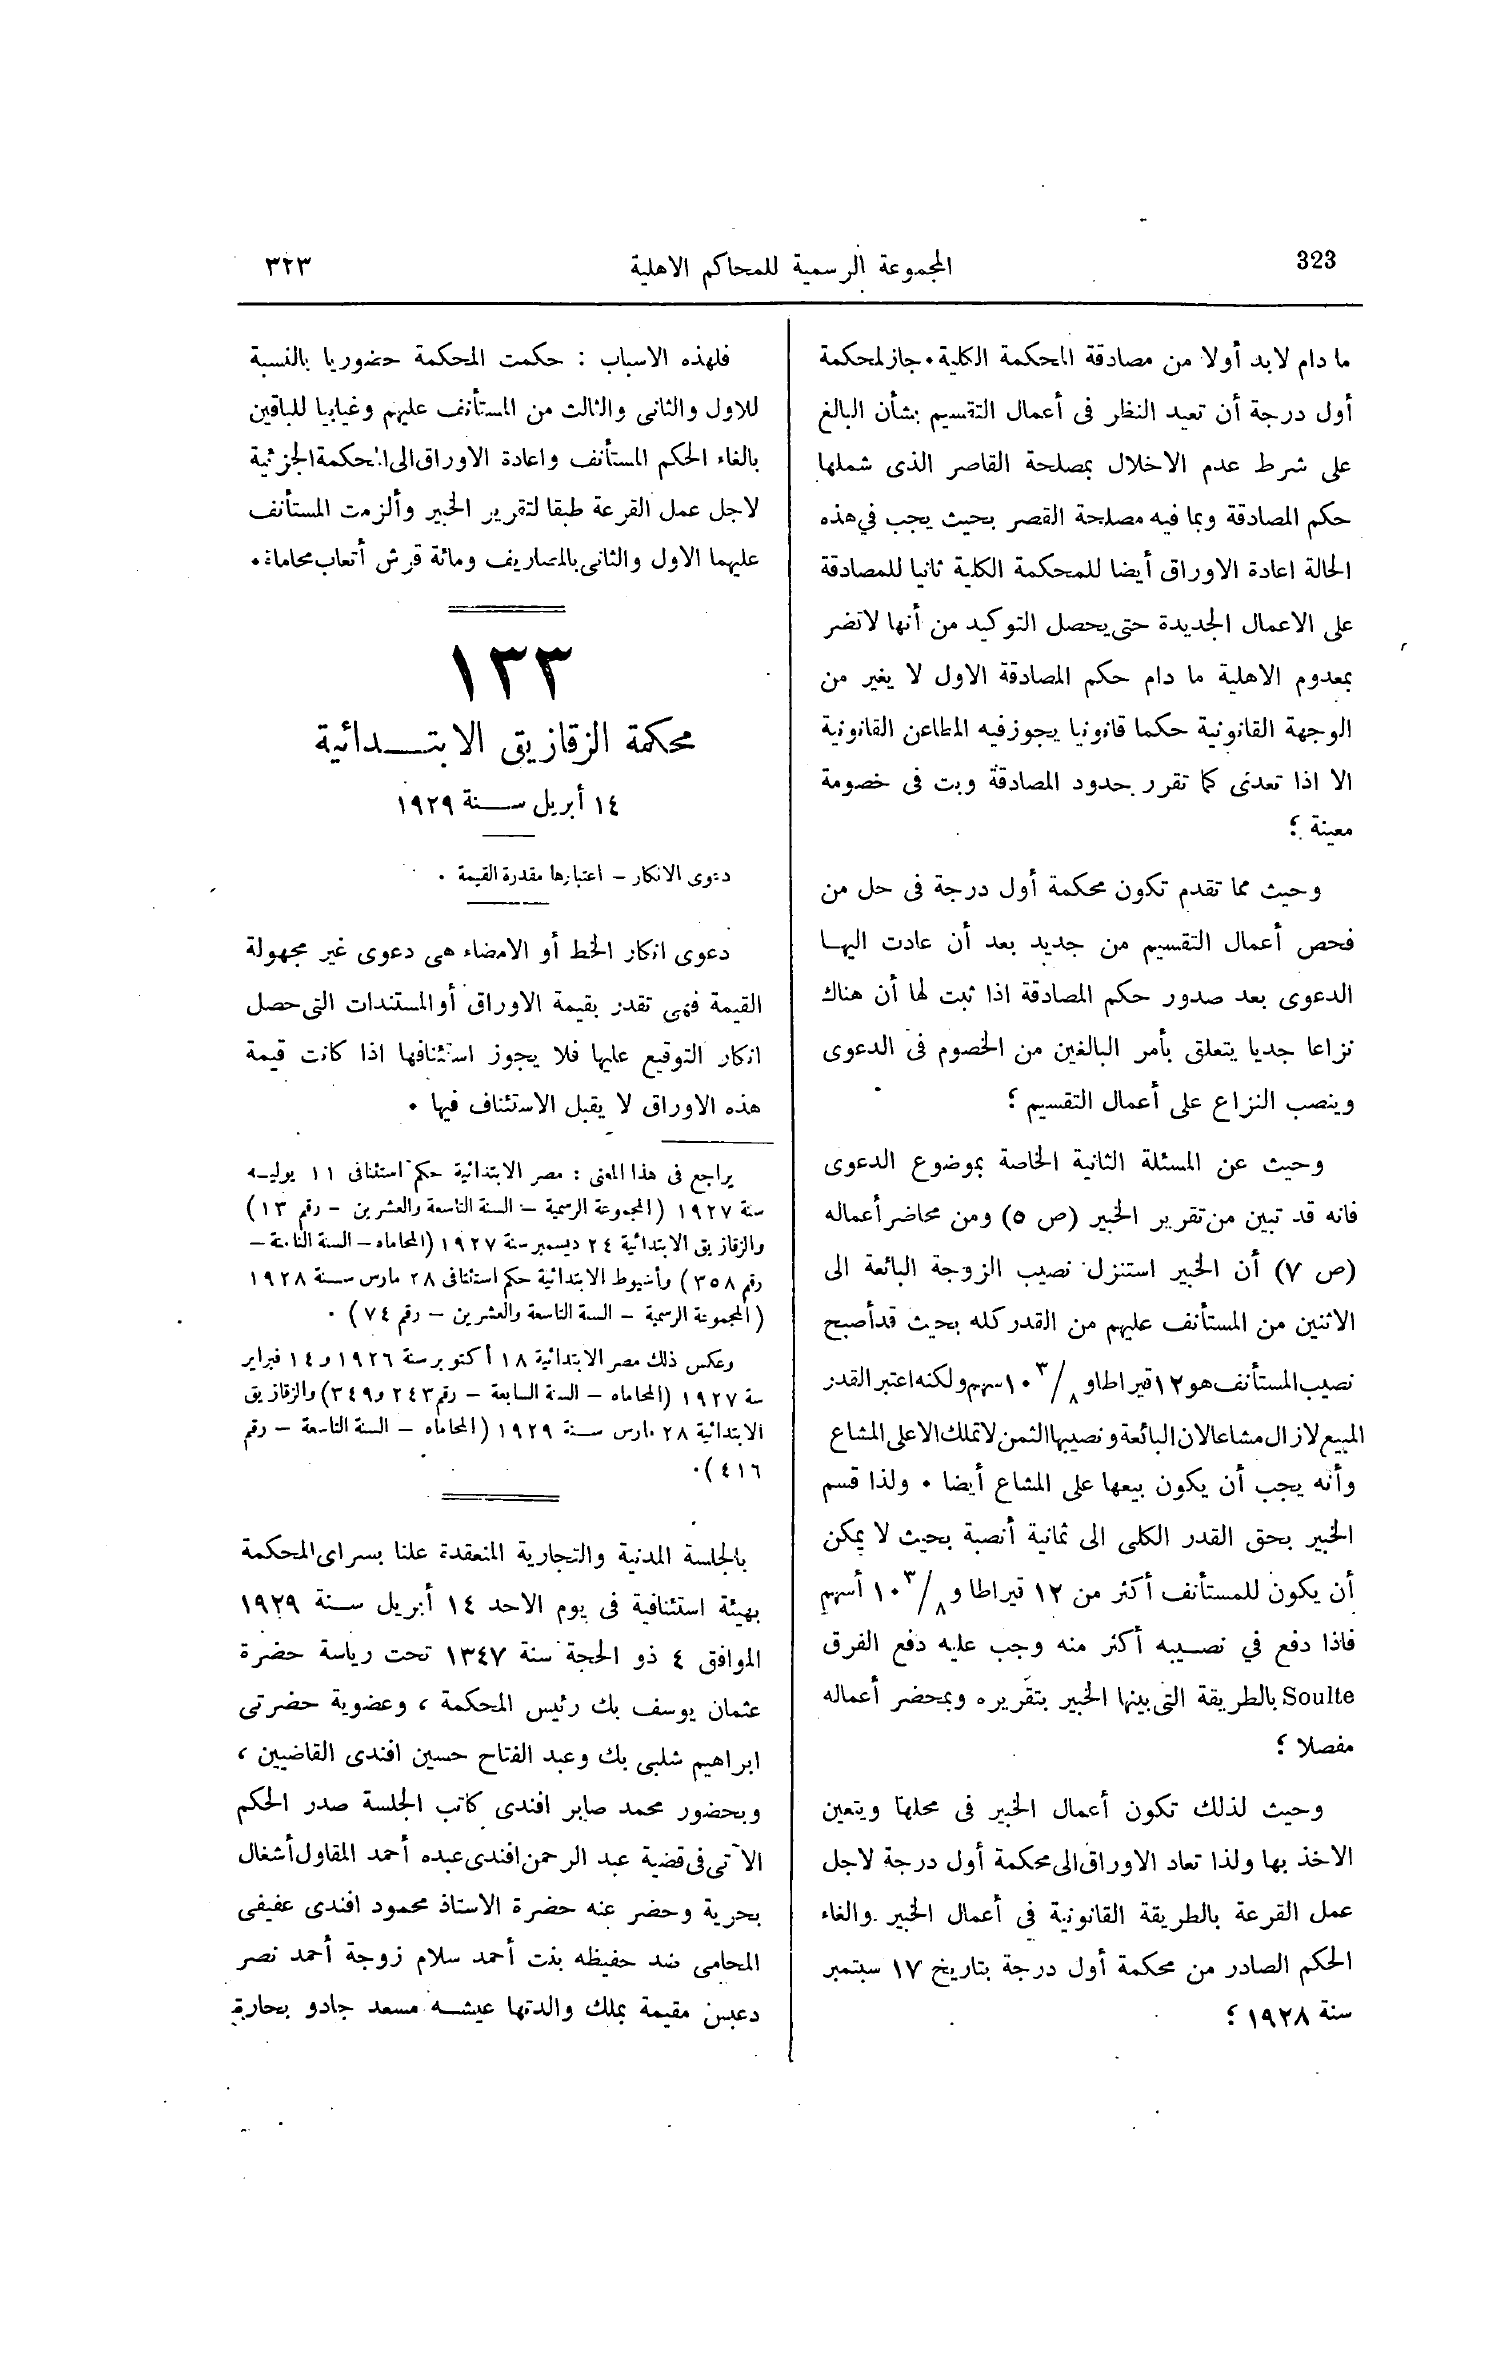 323
المجموعة الرسمية للمحاكم الاهلية
٣٢٣
ما دام لابد أولا من مصادقة المحكمة الكلية. جاز لمحكمة
أول درجة أن تعيد النظر فى أعمال التقسيم بشأن البالغ
على شرط عدم الاخلال بمصلحة القاصر الذى شملها
حكم المصادقة وبما فيه مصلحة القصر بحيث يجب في هذه
الحالة اعادة الاوراق أيضا للمحكمة الكلية ثانيا للمصادقة
على الاعمال الجديدة حتى يحصل التوكيد من أنها لاتضر
بمعدوم الاهلية ما دام حكم المصادقة الاول لا يغير من
الوجهة القانونية حكما قانونيا يجوز فيه المطاعن القانونية
الا اذا تعدى كما تقرر حدود المصادقة وبت فى خصومة
معينة ؛
وحيث مما تقدم تكون محكمة أول درجة فى حل من
فحص أعمال التقسيم من جديد بعد أن عادت اليها
الدعوى بعد صدور حكم المصادقة اذا ثبت لها أن هناك
نزاعا جديا يتعلق بأمر البالغين من الخصوم فى الدعوى
وينصب النزاع على أعمال التقسيم ؛
وحيث عن المسئلة الثانية الخاصة بموضوع الدعوى
فانه قد تبين من تقرير الخبير (ص ٥) ومن محاضر أعماله
(ص ٧) أن الخبير استنزل نصيب الزوجة البائعة الى
الاثنين من المستأنف عليهم من القدر كله بحيث قد أصبح
نصيب المستأنف هو ١٢ قيراطا و ٣/٨ ١٠ سهم ولكنه اعتبر القدر
المبيع لازال مشاعا لان البائعة ونصيبها الثمن لا تملك الا على المشاع
وأنه يجب أن يكون بيعها على المشاع أيضا . ولذا قسم
الخبير بحق القدر الكلى الى ثمانية أنصبة بحيث لا يمكن
أن يكون للمستأنف أكثر من ١٢ قيراطا و ٣/٨ ١٠ أسهم
فاذا دفع في نصيبه أكثر منه وجب عليه دفع الفرق
Soulte بالطريقة التى بينها الخبير بتقريره وبمحضر أعماله
مفصلا ؛
وحيث لذلك تكون أعمال الخبير فى محلها ويتعين
الاخذ بها ولذا تعاد الاوراق الى محكمة أول درجة لاجل
عمل القرعة بالطريقة القانونية في أعمال الخبير والغاء
الحكم الصادر من محكمة أول درجة بتاريخ ١٧ سبتمبر
سنة ١٩٢٨ ؛
فلهذه الاسباب : حكمت المحكمة حضوريا بالنسبة
للاول والثانى والثالث من المستأنف عليهم وغيابيا للباقين
بالغاء الحكم المستأنف واعادة الاوراق الى المحكمة الجزئية
لاجل عمل القرعة طبقا لتقرير الخبير وألزمت المستأنف
عليهما الاول والثانى بالمصاريف ومائة قرش أتعاب محاماة.
١٣٣
محكمة الزقازيق الابتدائية
١٤ أبريل سنة ١٩٢٩
دعوى الانكار – اعتبارها مقدرة القيمة .
دعوى انكار الخط أو الامضاء هى دعوى غير مجهولة
القيمة فهى تقدر بقيمة الاوراق أو المستندات التى حصل
انكار التوقيع عليها فلا يجوز استئنافها اذا كانت قيمة
هذه الاوراق لا يقبل الاستئناف فيها .
يراجع فى هذا المعنى : مصر الابتدائية حكم استئنافى ١١ يوليه
سنة ١٩٢٧ (المجموعة الرسمية – السنة التاسعة والعشرين – رقم ١٣)
والزقازيق الابتدائية ٢٤ ديسمبر سنة ١٩٢٧ (المحاماه – السنة الثامنة –
رقم ٣٥٨) وأسيوط الابتدائية حكم استئنافى ٢٨ مارس سنة ١٩٢٨
(المجموعة الرسمية – السنة التاسعة والعشرين – رقم ٧٤) .
وعكس ذلك مصر الابتدائية ١٨ أكتوبر سنة ١٩٢٦ و ١٤ فبراير
سنة ١٩٢٧ (المحاماه – السنة السابعة – رقم ٢٤٣ و ٣٤٩) والزقازيق
الابتدائية ٢٨ مارس سنة ١٩٢٩ (المحاماه – السنة التاسعة – رقم
٤١٦).
بالجلسة المدنية والتجارية المنعقدة علنا بسراى المحكمة
بهيئة استئنافية فى يوم الاحد ١٤ أبريل سنة ١٩٢٩
الموافق ٤ ذو الحجة سنة ١٣٤٧ تحت رياسة حضرة
عثمان يوسف بك رئيس المحكمة ، وعضوية حضرتى
ابراهيم شلبى بك وعبد الفتاح حسين افندى القاضيين ،
وبحضور محمد صابر افندى كاتب الجلسة صدر الحكم
الآتى فى قضية عبد الرحمن افندى عبده أحمد المقاول أشغال
بحرية وحضر عنه حضرة الاستاذ محمود افندى عفيفى
المحامى ضد حفيظه بنت أحمد سلام زوجة أحمد نصر
دعبس مقيمة بملك والدتها عيشه مسعد جادو بحارة